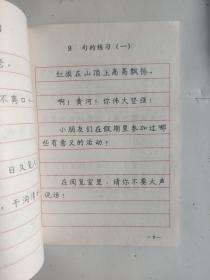 9 句的练习(一)
红旗在山顶上高高飘扬。
啊!黄河!你伟大坚强!
小朋友们在假期里参加过哪
些有意义的活动?
在阅览室里,请你不要大声
说话!
—9—
不离口
日久见
干沟渠